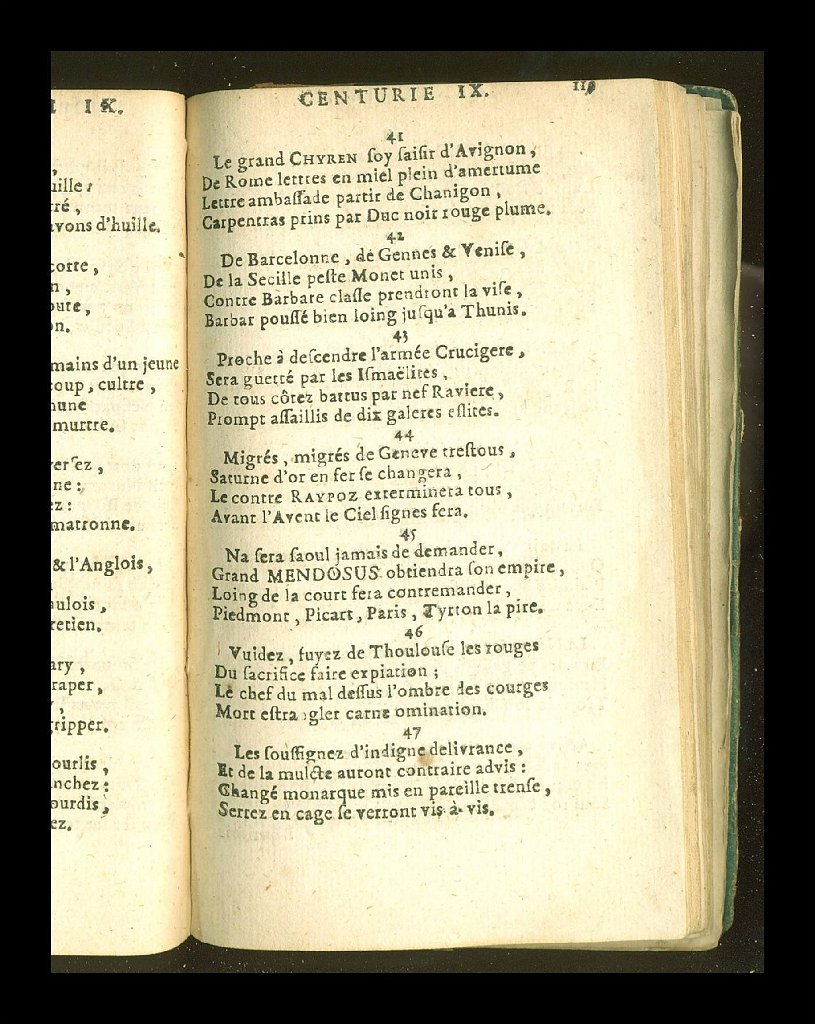 IX.
uille :
ré ,
vons d'huille.
corte ,
n ,
oute ,
on.
mains d'un jeune
coup , cultre ,
mune
murtre.
verſez ,
ne :
ez :
matronne.
& l'Anglois ,
aulois ,
retien.
ary ,
raper ,
,
gripper.
ourlis ,
nchez :
ourdis ,
ez.
CENTURIE IX. 119
41
Le grand CHYREN ſoy ſaiſir d'Avignon ,
De Rome lettres en miel plein d'amertume
Lettre ambaſſade partir de Chanigon ,
Carpentras prins par Duc noir rouge plume.
42
De Barcelonne , de Gennes & Veniſe ,
De la Secille peſte Monet unis ,
Contre Barbare claſſe prendront la viſe ,
Barbar pouſſé bien loing juſqu'à Thunis.
43
Proche à deſcendre l'armée Crucigere ,
Sera guetté par les Iſmaëlites ,
De tous côtez battus par nef Raviere ,
Prompt aſſaillis de dix galeres eſlites.
44
Migrés , migrés de Geneve treſtous ,
Saturne d'or en fer ſe changera ,
Le contre RAYPOZ exterminera tous ,
Avant l'Avent le Ciel ſignes fera.
45
Na ſera ſaoul jamais de demander ,
Grand MENDOSUS obtiendra ſon empire ,
Loing de la court fera contremander ,
Piedmont , Picart , Paris , Tyrron la pire.
46
Vuidez , fuyez de Thoulouſe les rouges
Du ſacrifice faire expiation ;
Le chef du mal deſſus l'ombre des courges
Mort eſtra gler carne omination.
47
Les ſouſſignez d'indigne delivrance ,
Et de la mulcte auront contraire advis :
Changé monarque mis en pareille trenſe ,
Serrez en cage ſe verront vis à vis.